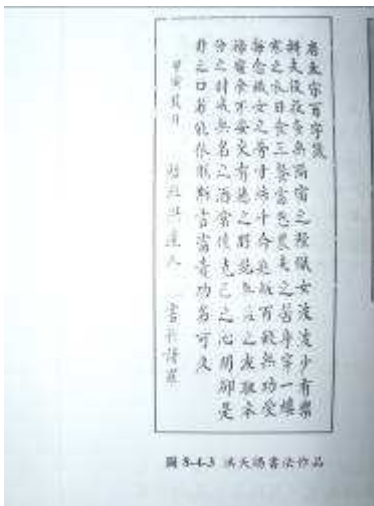 唐太宗百字箴
耕夫役役多無隔宿之糧織女波波少有禦
寒之衣日食三餐當思農夫之苦身穿一縷
每念織女之勞寸絲千命匙飯百鞭無功受
祿寢食不安交有德之朋絕無義之友取本
分之財戒無名之酒常懷克己之心閉卻是
非之口若能依朕斯言富貴功名可久
月 洪達人 書於諸羅
圖 8-4-3 洪天賜書法作品